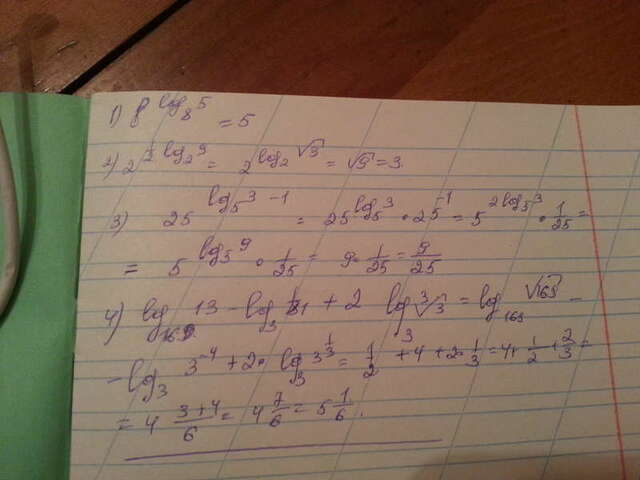 1) 8^{log_8 5} = 5
2) 2^{\frac{1}{2} log_2 9} = 2^{log_2 √9} = √9 = 3.
3) 25^{log_5 3 - 1} = 25^{log_5 3} · 25^{-1} = 5^{2log_5 3} · \frac{1}{25} =
= 5^{log_5 9} · \frac{1}{25} = 9 · \frac{1}{25} = \frac{9}{25}
4) log_{169} 13 - log_3 \frac{1}{81} + 2 log_3 ∛3 = log_{169} √169 -
- log_3 3^{-4} + 2 · log_3 3^{\frac{1}{3}} = \frac{1}{2} + 4 + 2 · \frac{1}{3} = 4 + \frac{1}{2} + \frac{2}{3} =
= 4 \frac{3+4}{6} = 4 \frac{7}{6} = 5 \frac{1}{6}.